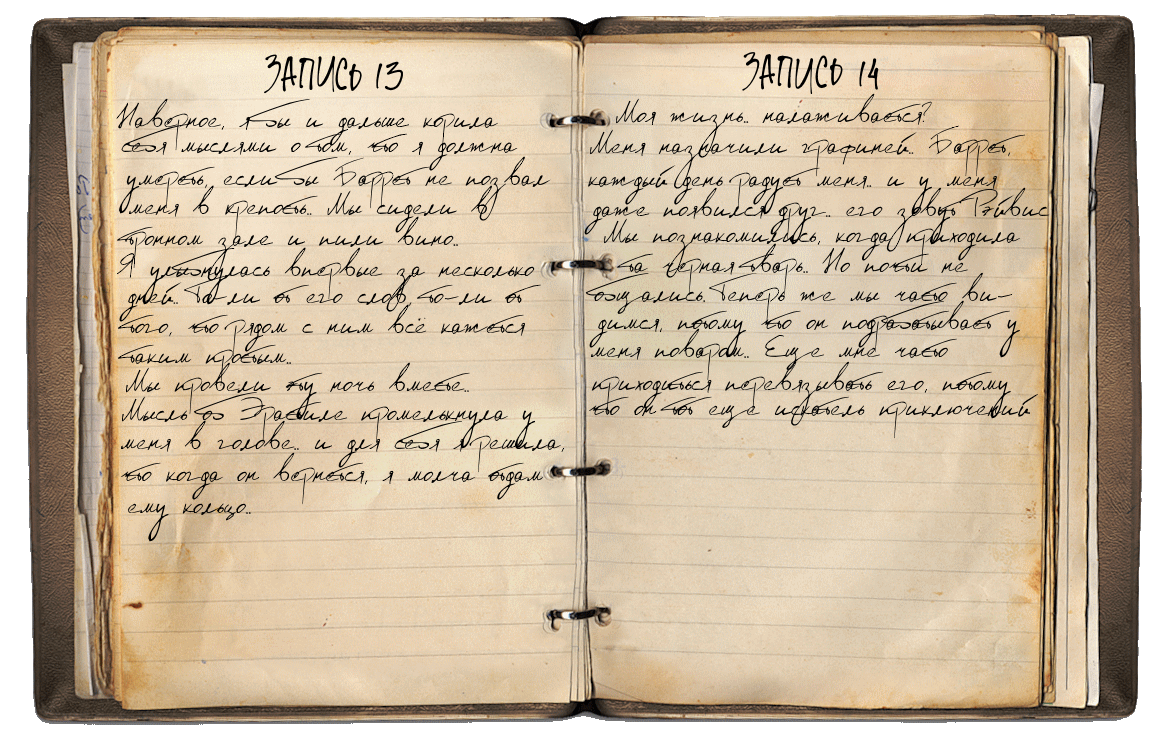 ЗАПИСЬ 13
Наверное, я бы и дальше корила
себя мыслями о том, что я должна
умереть, если бы Баррет не позвал
меня в крепость.. Мы сидели в
тронном зале и пили вино..
Я улыбнулась впервые за несколько
дней.. То-ли от его слов, то-ли от
того, что рядом с ним всё кажется
таким простым..
Мы провели эту ночь вместе..
Мысль об Эрабиле промелькнула у
меня в голове.. и для себя я решила,
что когда он вернется, я молча отдам
ему кольцо..
ЗАПИСЬ 14
Моя жизнь.. налаживается?
Меня назначили графиней.. Баррет,
каждый день радует меня.. и у меня
даже появился друг.. его зовут Рэйвис
Мы познакомились, когда приходила
та черная тварь.. Но почти не
общались. Теперь же мы часто ви-
димся, потому что он подрабатывает у
меня поваром.. Еще мне часто
приходиться перевязывать его, потому
что он тот еще искатель приключений